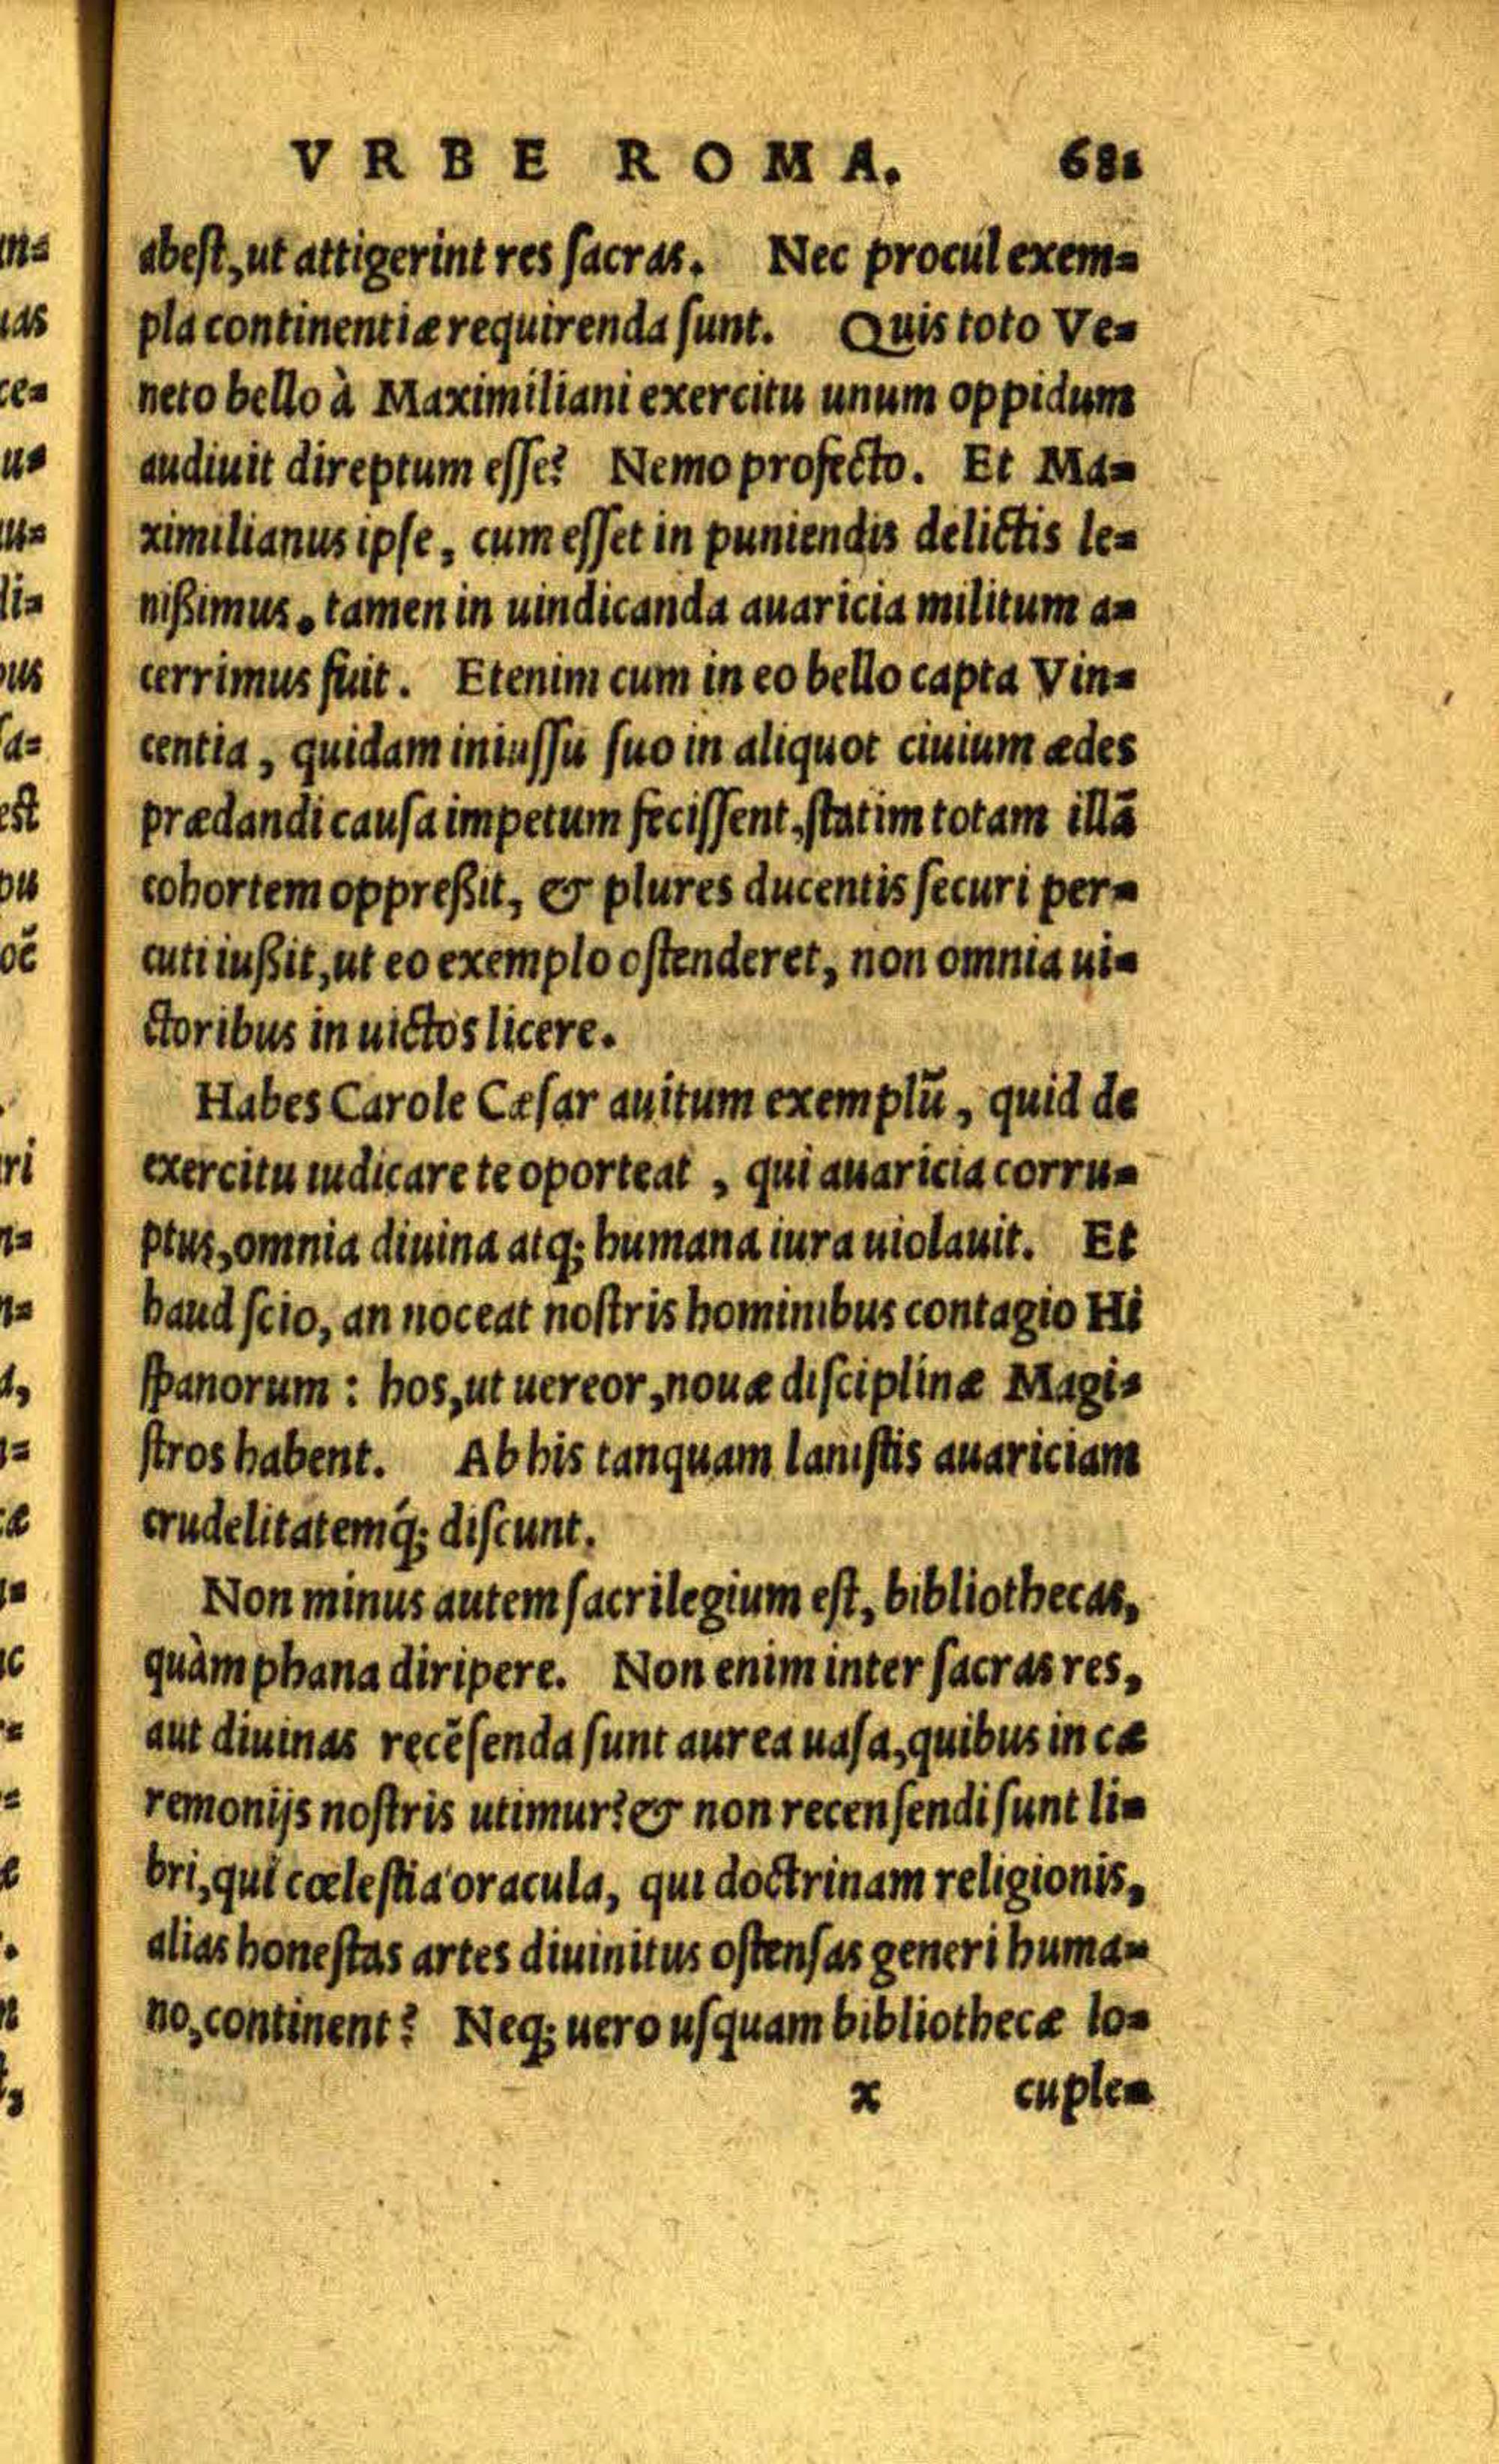 VRBE ROMA. 681
abest, ut attigerint res sacras. Nec procul exem=
pla continentiæ requirenda sunt. Quis toto Ve=
neto bello à Maximiliani exercitu unum oppidum
audiuit direptum esse? Nemo profecto. Et Ma=
ximilianus ipse, cum esset in puniendis delictis le=
nißimus, tamen in uindicanda auaricia militum a=
cerrimus fuit. Etenim cum in eo bello capta Vin=
centia, quidam iniussu suo in aliquot ciuium ædes
prædandi causa impetum fecissent, statim totam illã
cohortem oppreßit, & plures ducentis securi per=
cuti iußit, ut eo exemplo ostenderet, non omnia ui=
ctoribus in uictos licere.
Habes Carole Cæsar auitum exemplũ, quid de
exercitu iudicare te oporteat, qui auaricia corru=
ptus, omnia diuina atq; humana iura uiolauit. Et
haud scio, an noceat nostris hominibus contagio Hi
spanorum: hos, ut uereor, nouæ disciplinæ Magi=
stros habent. Ab his tanquam lanistis auariciam
crudelitatemq́; discunt.
Non minus autem sacrilegium est, bibliothecas,
quàm phana diripere. Non enim inter sacras res,
aut diuinas recẽsenda sunt aurea uasa, quibus in cæ
remonijs nostris utimur? & non recensendi sunt li=
bri, qui cœlestia oracula, qui doctrinam religionis,
alias honestas artes diuinitus ostensas generi huma=
no, continent? Neq; uero usquam bibliothecæ lo=
x cuple=